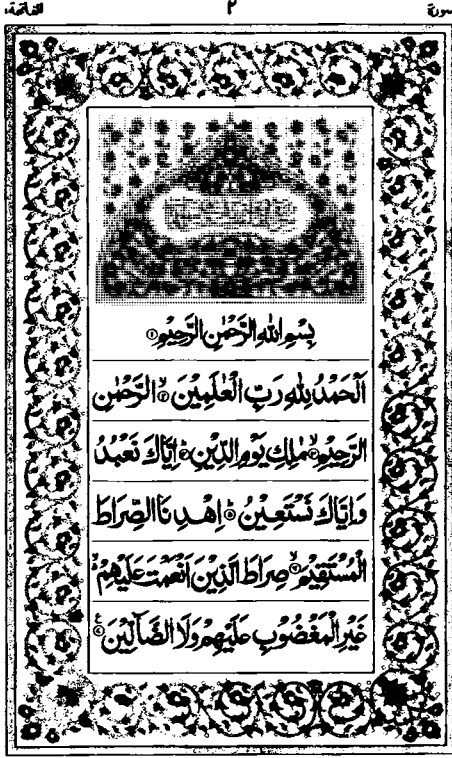 سورة ٢ الفاتحة
بِسْمِ اللهِ الرَّحْمٰنِ الرَّحِيْمِ ۝١
اَلْحَمْدُ لِلّٰهِ رَبِّ الْعٰلَمِيْنَ ۝٢ الرَّحْمٰنِ
الرَّحِيْمِ ۝٣ مٰلِكِ يَوْمِ الدِّيْنِ ۝٤ اِيَّاكَ نَعْبُدُ
وَاِيَّاكَ نَسْتَعِيْنُ ۝٥ اِهْدِنَا الصِّرَاطَ
الْمُسْتَقِيْمَ ۝٦ صِرَاطَ الَّذِيْنَ اَنْعَمْتَ عَلَيْهِمْ
غَيْرِ الْمَغْضُوْبِ عَلَيْهِمْ وَلَا الضَّآلِّيْنَ ۝٧